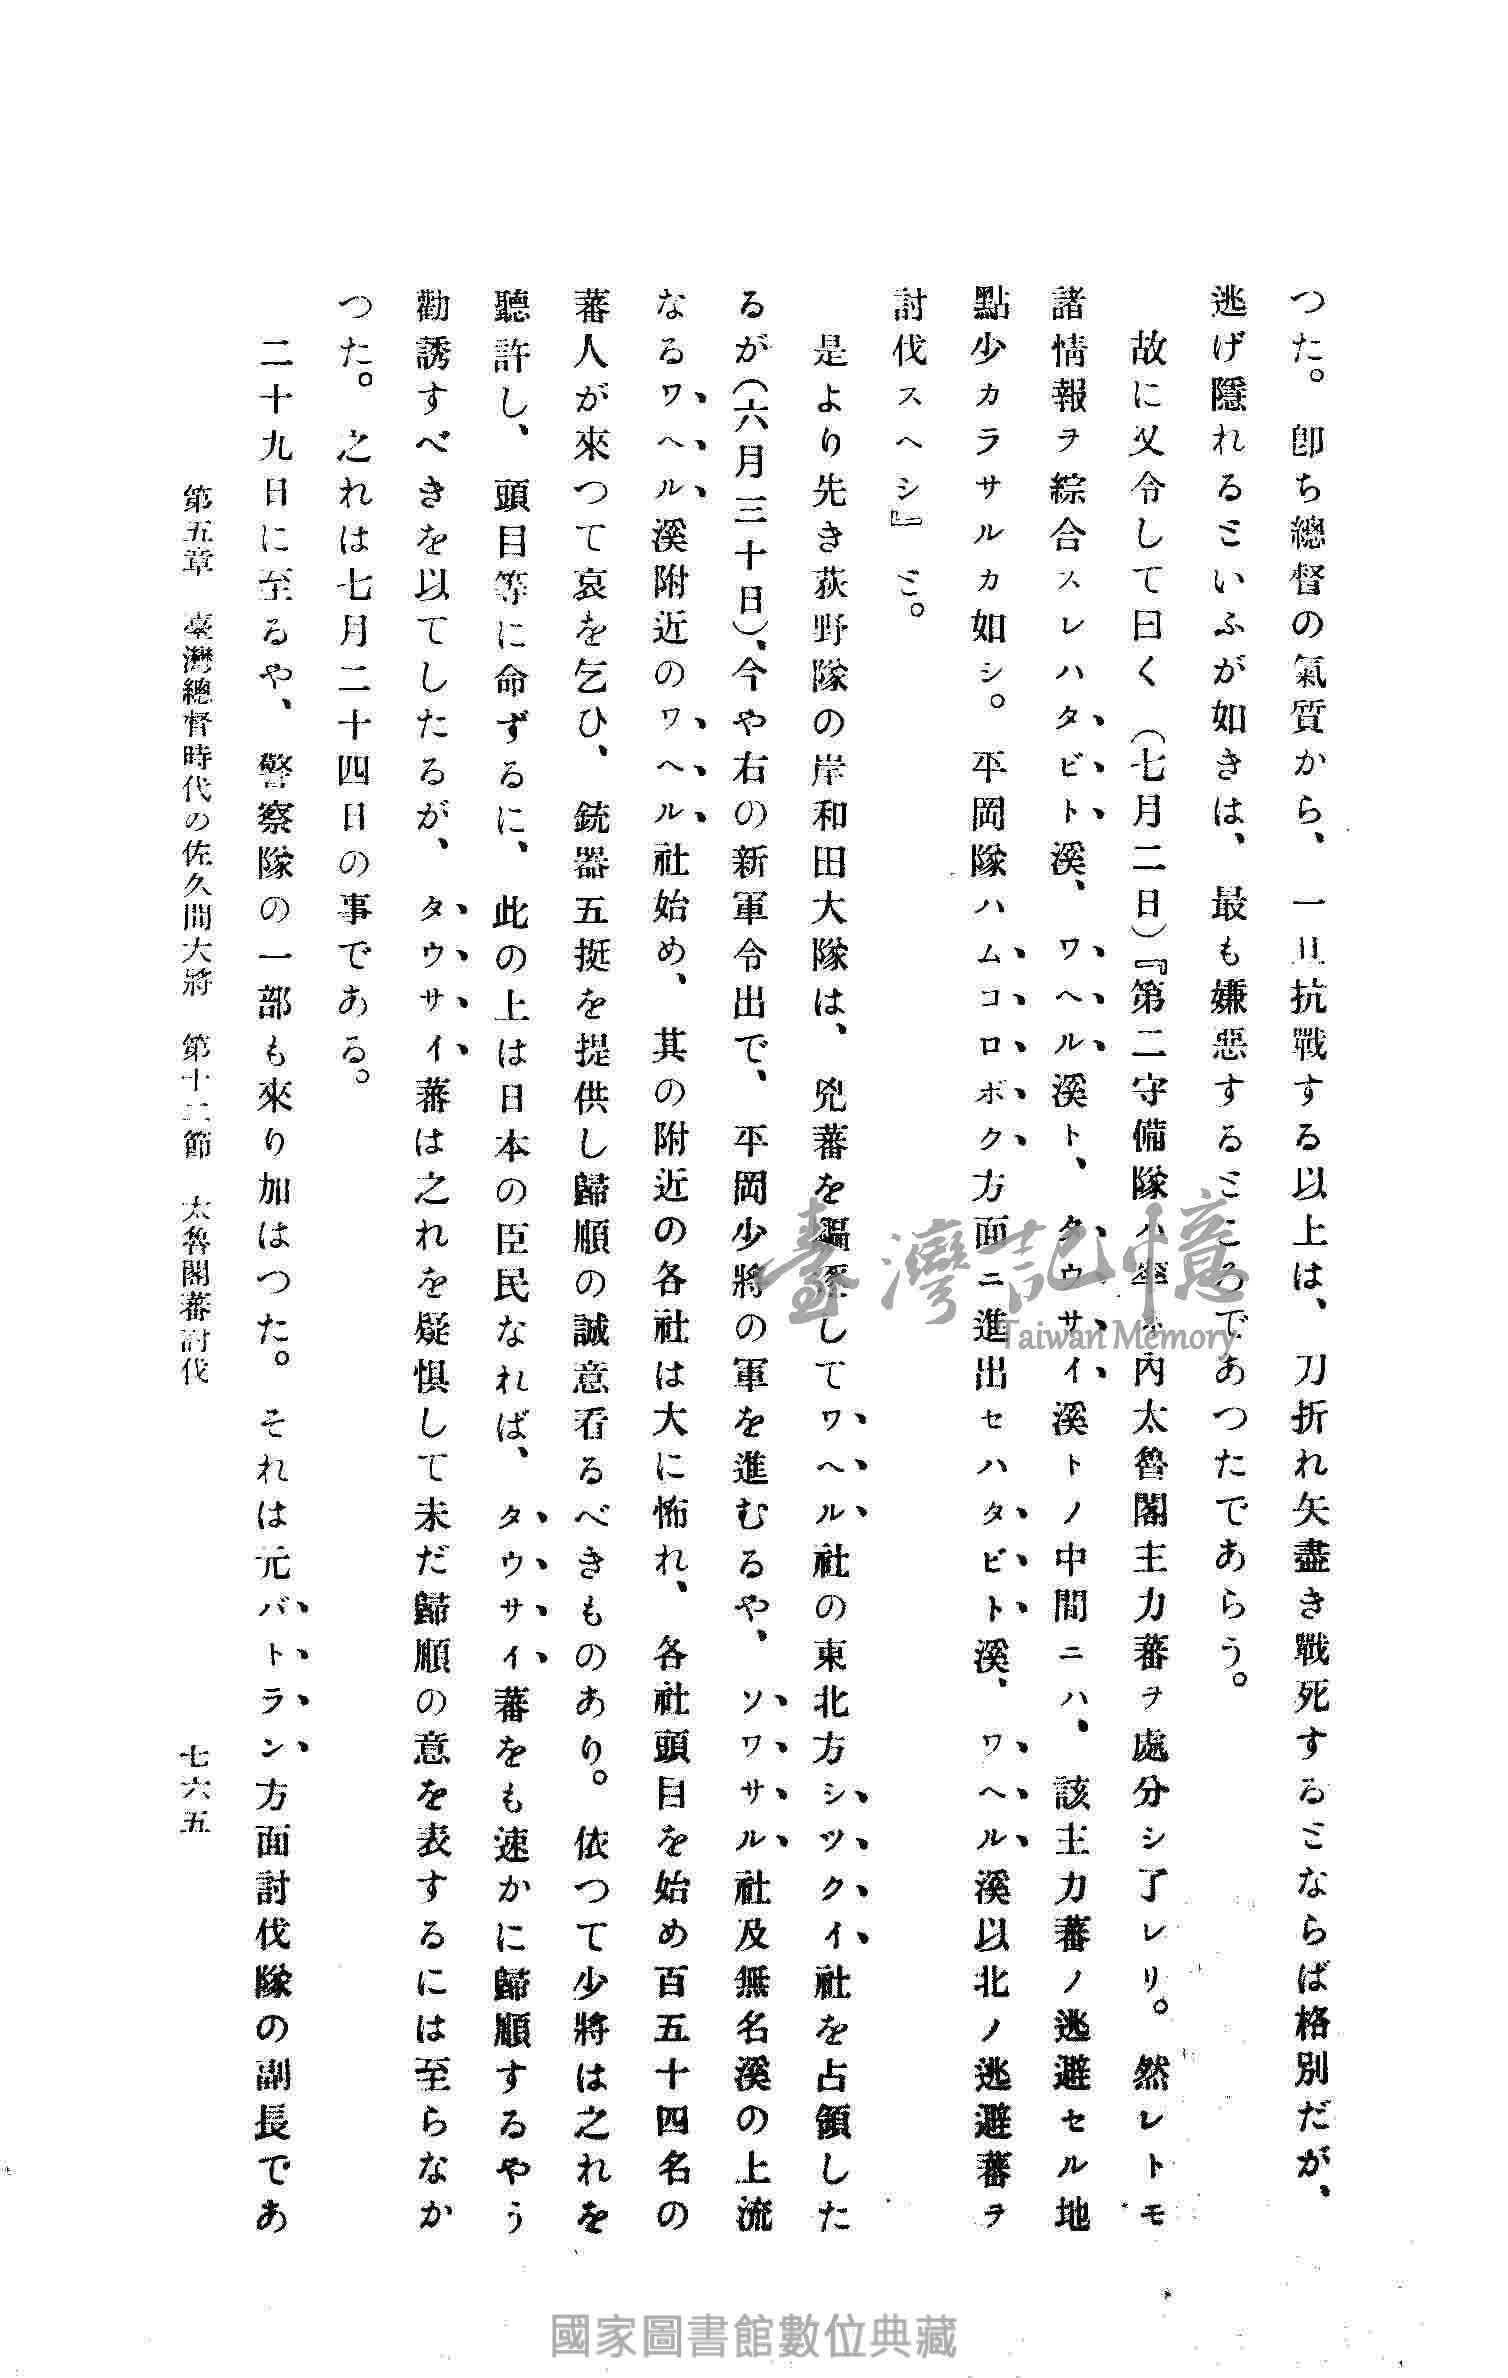 つた。卽ち總督の氣質から、一旦抗戰する以上は、刀折れ矢盡き戰死するミならば格別だが、
逃げ隱れるミいふが如きは、最も嫌惡するミころであつたであらう。
故に又令して曰く(七月二日)『第二守備隊ハ率ネ內太魯閣主力蕃ヲ處分シ了レリ。然レトモ
諸情報ヲ綜合スレハタビト溪、ワヘル溪ト、タウサイ溪トノ中間ニハ、該主力蕃ノ逃避セル地
點少カラサルカ如シ。平岡隊ハムコロボク方面ニ進出セハタビト溪、ワヘル溪以北ノ逃避蕃ヲ
討伐スヘシ』ミ。
是より先き荻野隊の岸和田大隊は、兇蕃を してワヘル社の東北方シツクイ社を占領した
るが(六月三十日)、今や右の新軍令出で、平岡少將の軍を進むるや、ソワサル社及無名溪の上流
なるワヘル溪附近のワヘル社始め、其の附近の各社は大に怖れ、各社頭目を始め百五十四名の
蕃人が來つて哀を乞ひ、銃器五挺を提供し歸順の誠意看るべきものあり。依つて少將は之れを
聽許し、頭目等に命ずるに、此の上は日本の臣民なれば、タウサイ蕃をも速かに歸順するやう
勸誘すべきを以てしたるが、タウサイ蕃は之れを疑惧して未だ歸順の意を表するには至らなか
つた。之れは七月二十四日の事である。
二十九日に至るや、警察隊の一部も來り加はつた。それは元バトラン方面討伐隊の副長であ
第五章 臺灣總督時代の佐久間大將 第十二節 太魯閣蕃討伐
七六五
臺灣記憶
Taiwan Memory
國家圖書館數位典藏